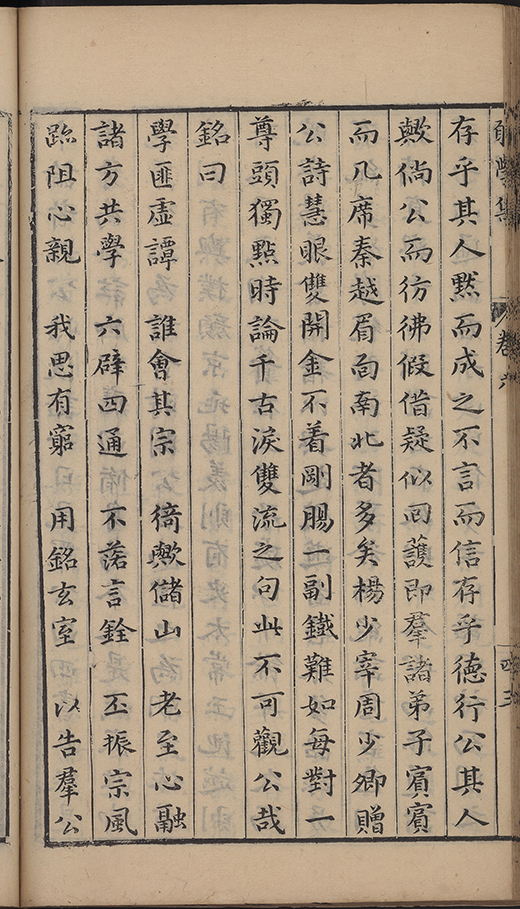 存乎其人黙而成之不言而信存乎德行公其人
歟倘公而彷彿假借疑似回護即羣諸弟子賓賓
而几席秦越眉面南北者多矣楊少宰周少卿贈
公詩慧眼雙開金不着剛腸一副鐵難如每對一
尊頭獨點時論千古淚雙流之句此不可觀公哉
銘曰
學匪虛譚 誰會其宗 猗歟儲山 老至心融
諸方共學 六闢四通 不落言銓 丕振宗風
跡阻心親 我思有窮 用銘玄室 以告羣公
卷六
四三